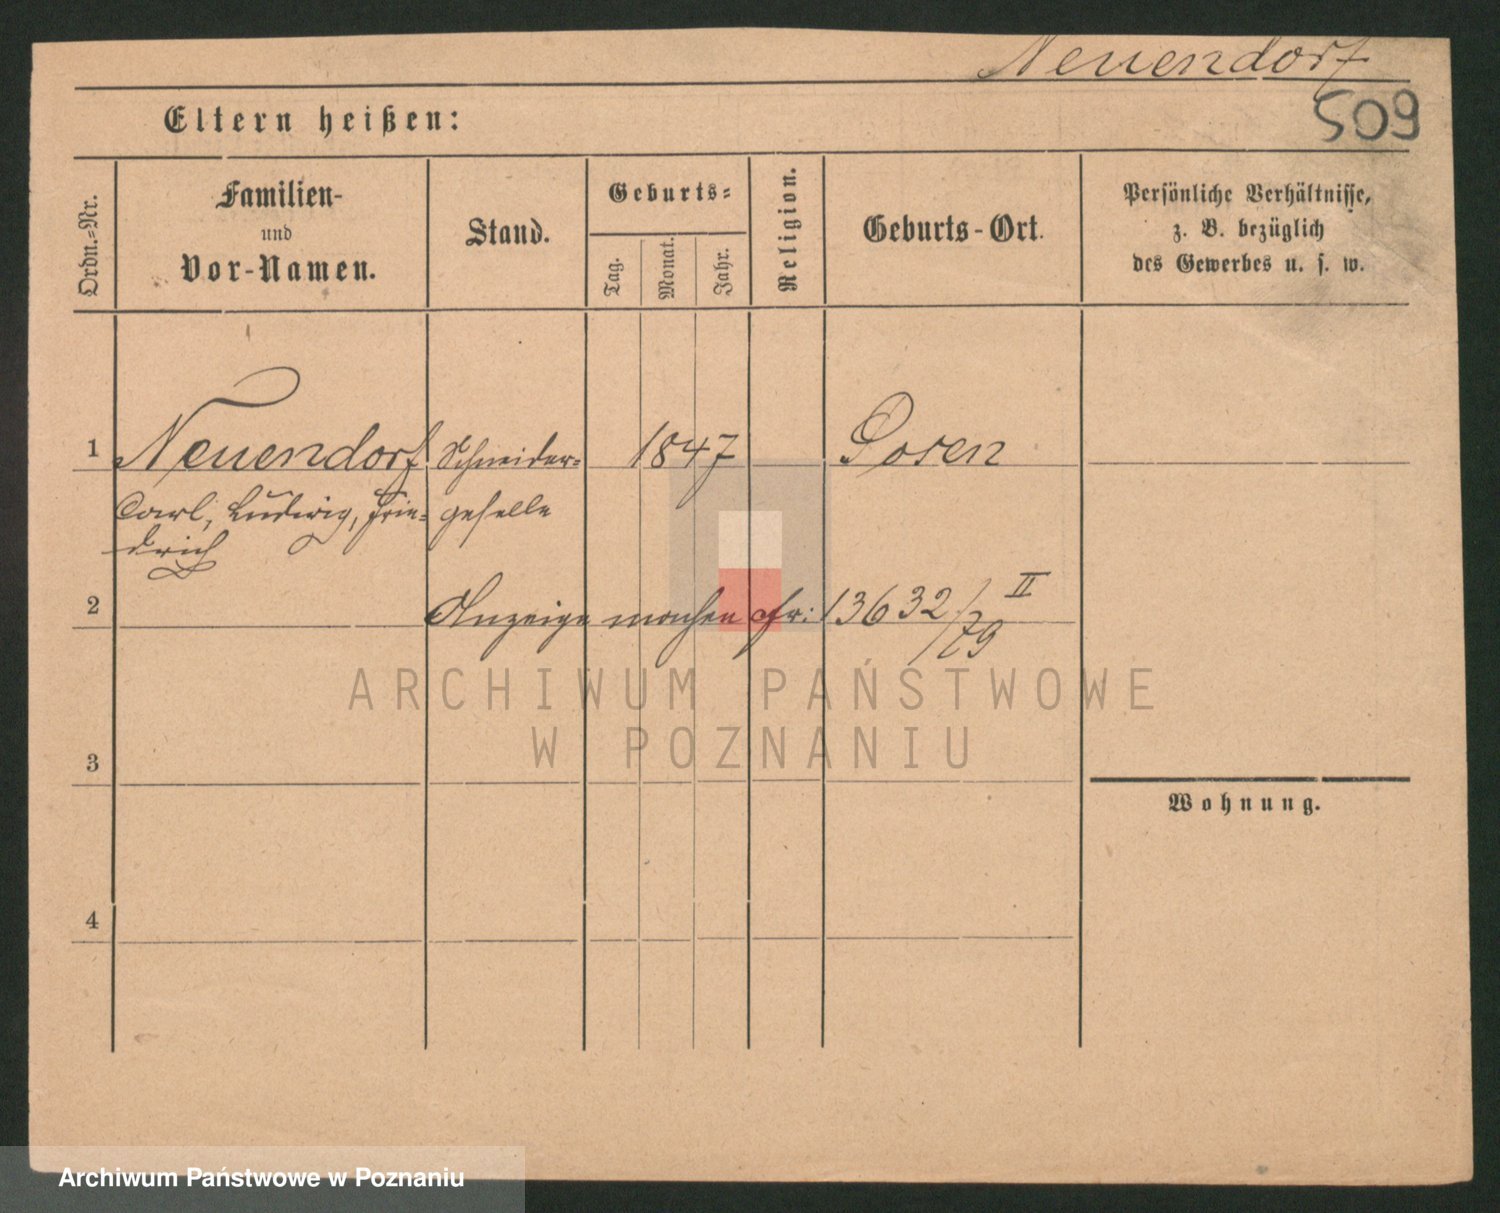 Neuendorf
509
Eltern heißen:
Ordn.=Nr.
Familien-
und
Vor-Namen.
Stand.
Geburts=
Tag.
Monat.
Jahr.
Religion.
Geburts-Ort.
Persönliche Verhältnisse,
z. B. bezüglich
des Gewerbes u. s. w.
1 Neuendorf Schneider= 1847 Posen
Carl, Ludwig, Frie= geselle
drich
2 Anzeige machen cfr: 13632/79 II
ARCHIWUM PAŃSTWOWE
W POZNANIU
3
Wohnung.
4
Archiwum Państwowe w Poznaniu